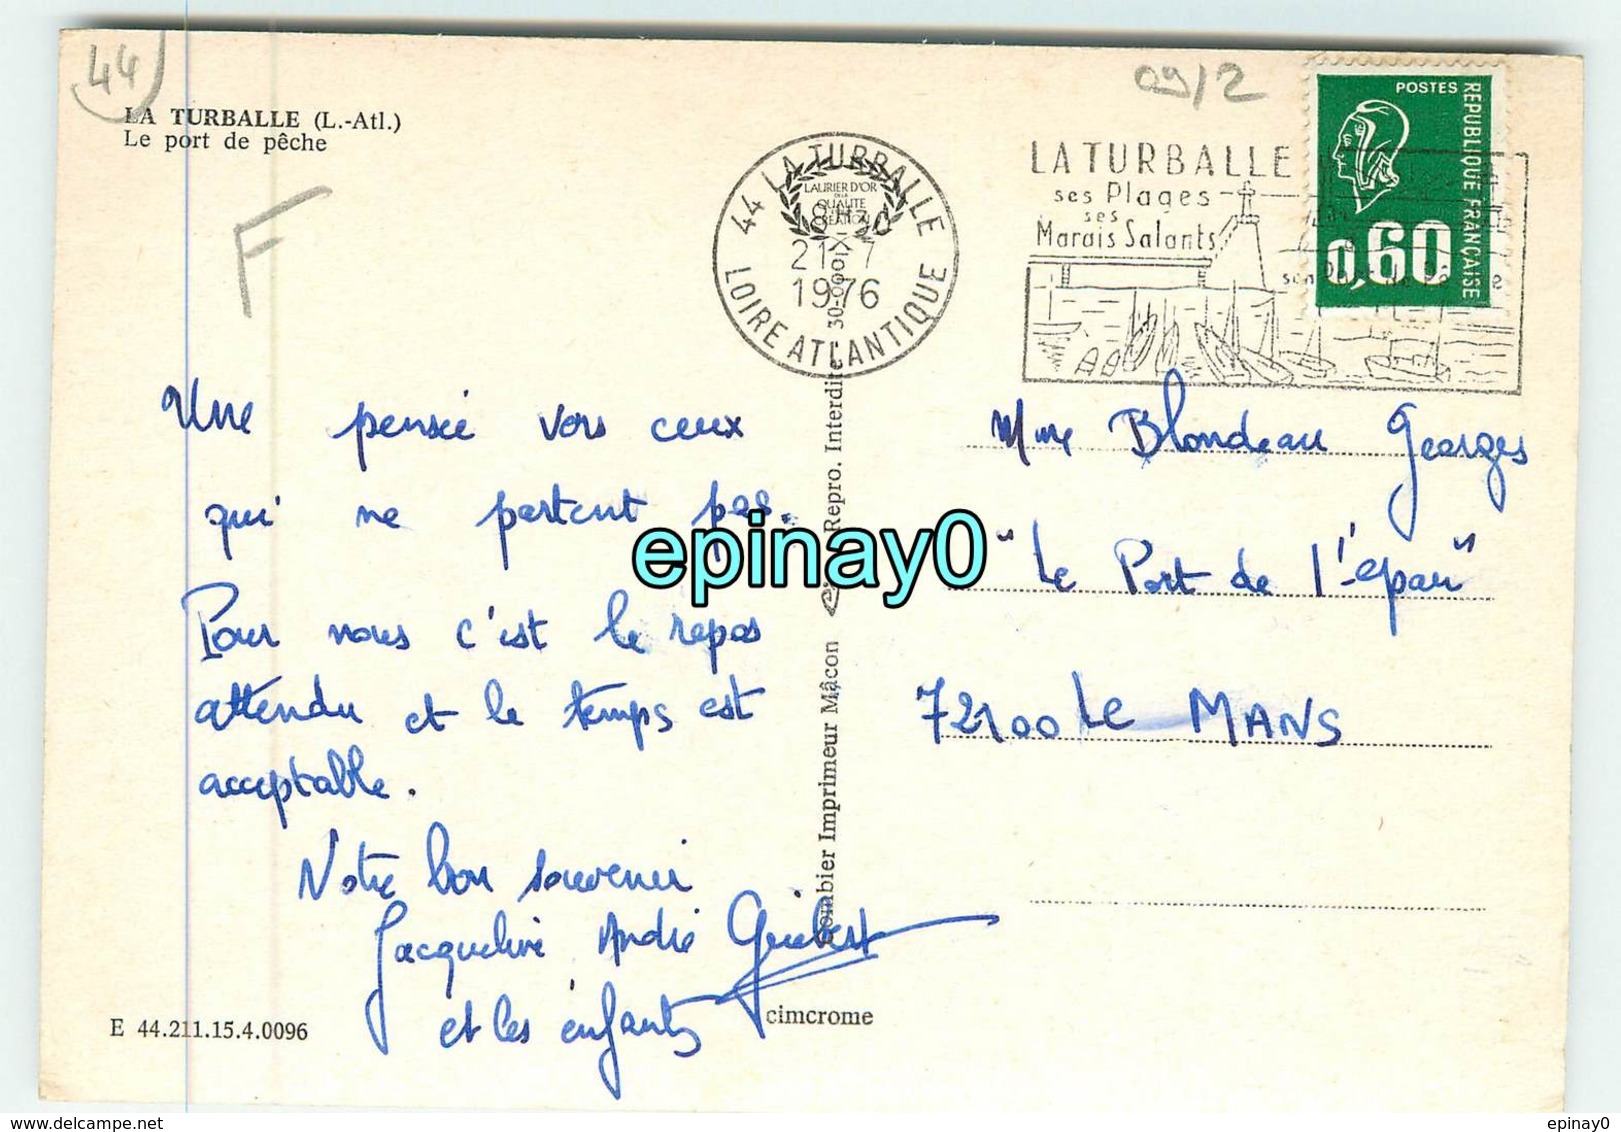 44
09/2
LA TURBALLE (L.-Atl.)
Le port de pêche
F
44 LA TURBALLE
LAURIER D'OR
DE LA
QUALITÉ
CRÉATION
21-7
1976
LOIRE ATLANTIQUE
LA TURBALLE
ses Plages
ses
Marais Salants
son Port de Pêche
POSTES
REPUBLIQUE FRANÇAISE
0,60
Une pensée vers ceux
qui ne partent pas.
Pour nous c'est le repos
attendu et le temps est
acceptable.
Notre bon souvenir
Jacqueline André Guibert
et les enfants
Mme Blondeau Georges
"Le Port de l'-épau"
72100 LE MANS
Combier Imprimeur Mâcon
Repro. Interdite
epinay0
E 44.211.15.4.0096
cimcrome
epinay0